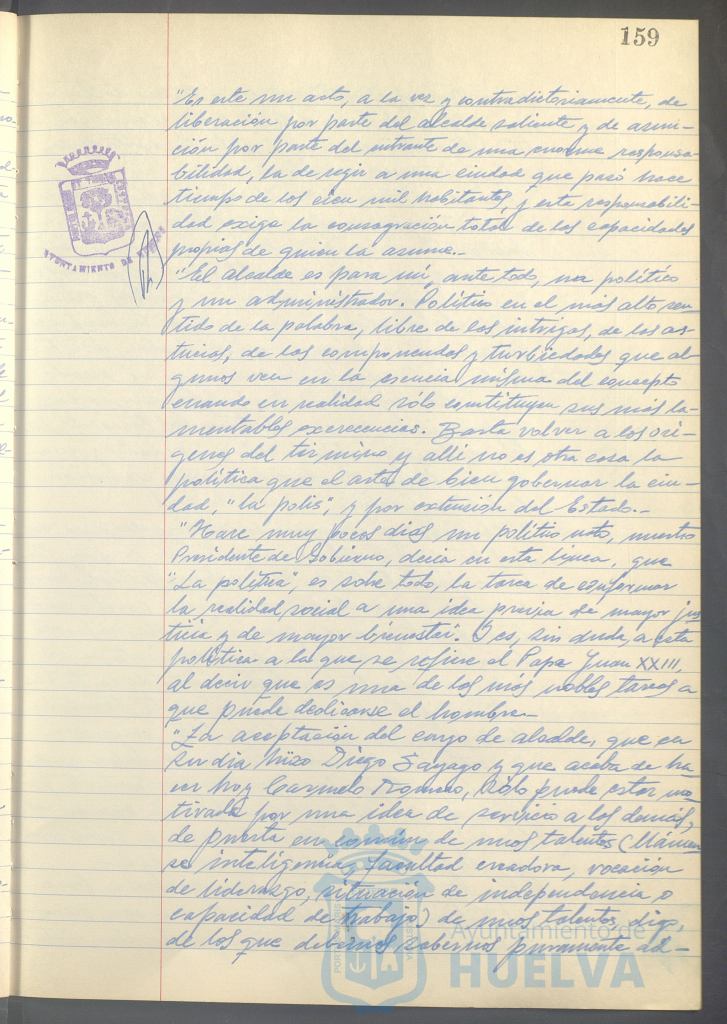 159
"Es este un acto, a la vez y contradictoriamente, de
liberación por parte del alcalde saliente y de asun-
ción por parte del entrante de una enorme responsa-
bilidad, la de regir a una ciudad que pasó hace
tiempo de los cien mil habitantes, y esta responsabili-
dad exige la consagración total de las capacidades
propias de quien la asume.-
"El alcalde es para mí, ante todo, un político
y un administrador. Político en el más alto sen-
tido de la palabra, libre de las intrigas, de las as-
tucias, de los componendas y turbiedades que al-
gunos ven en la esencia misma del concepto
cuando en realidad sólo constituyen sus más la-
mentables excrecencias. Basta volver a los orí-
genes del término y allí no es otra cosa la
política que el arte de bien gobernar la ciu-
dad, "la polis", y por extensión del Estado.-
"Hace muy pocos días un político nato, nuestro
Presidente de Gobierno, decía en esta línea, que
"La política", es sobre todo, la tarea de conformar
la realidad social a una idea previa de mayor jus
ticia y de mayor bienestar". Y es, sin duda, a esta
política a la que se refiere el Papa Juan XXIII,
al decir que es una de las más nobles tareas a
que puede dedicarse el hombre.-
"La aceptación del cargo de alcalde, que en
su día hizo Diego Sayago y que acaba de ha
cer hoy Carmelo Romero, sólo puede estar mo
tivada por una idea de servicio a los demás,
de puesta en común de unos talentos (llámen
se inteligencia, facultad creadora, vocación
de liderazgo, situación de independencia o
capacidad de trabajo) de unos talentos, digo,
de los que debemos sabernos puramente ad-
AYUNTAMIENTO DE HUELVA
Ayuntamiento de
HUELVA